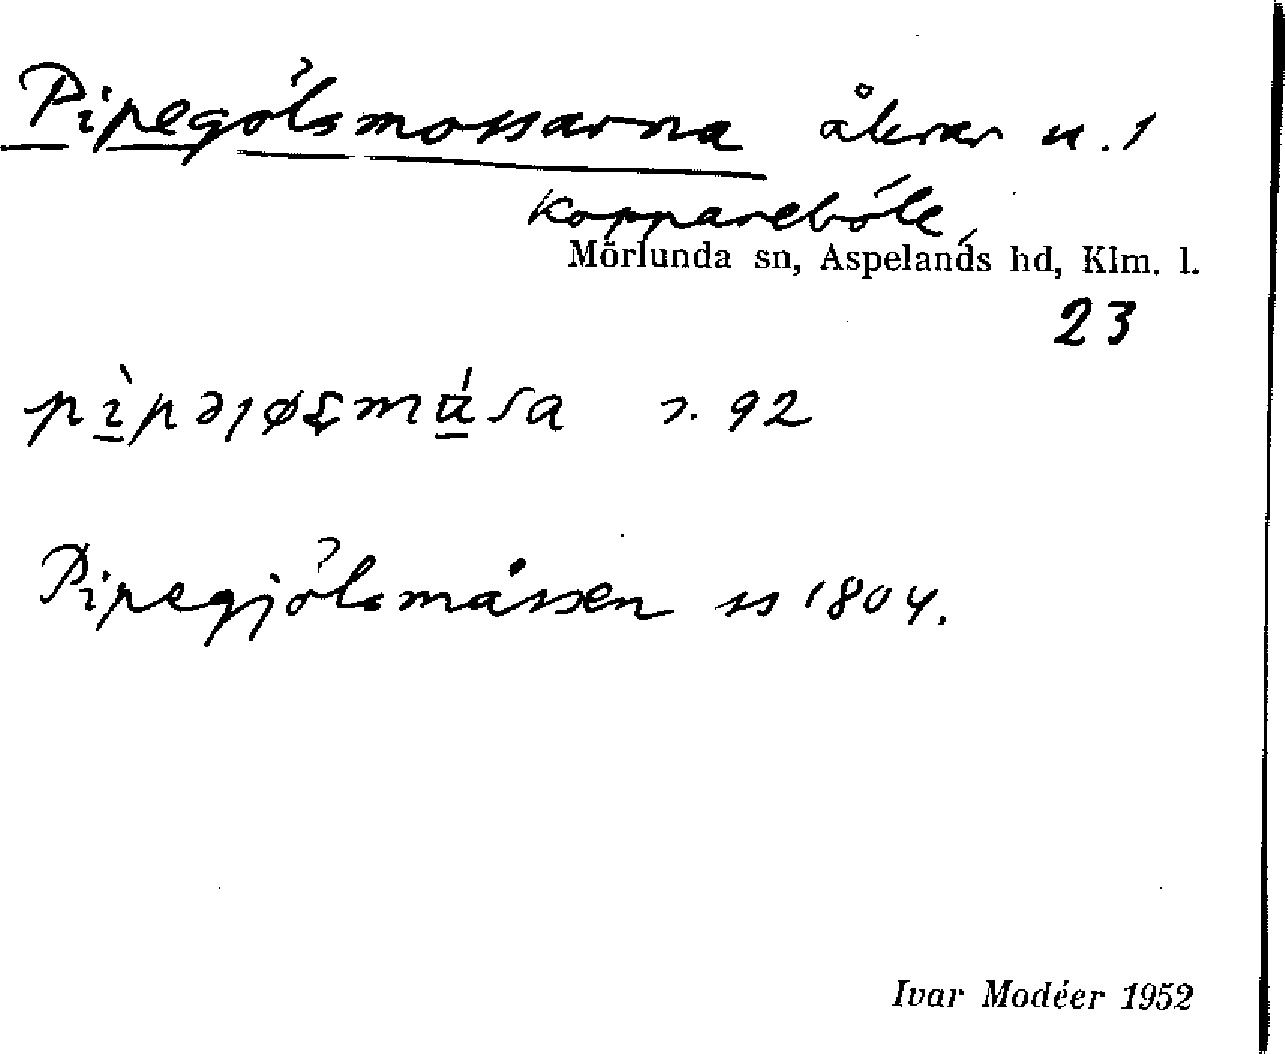 Pipegölsmossarna åkrar u. 1
Koppareböle,
Mörlunda sn, Aspelands hd, Klm. l.
23
s. 92
Pipegjölsmåssen ss 1804.
Ivar Modéer 1952